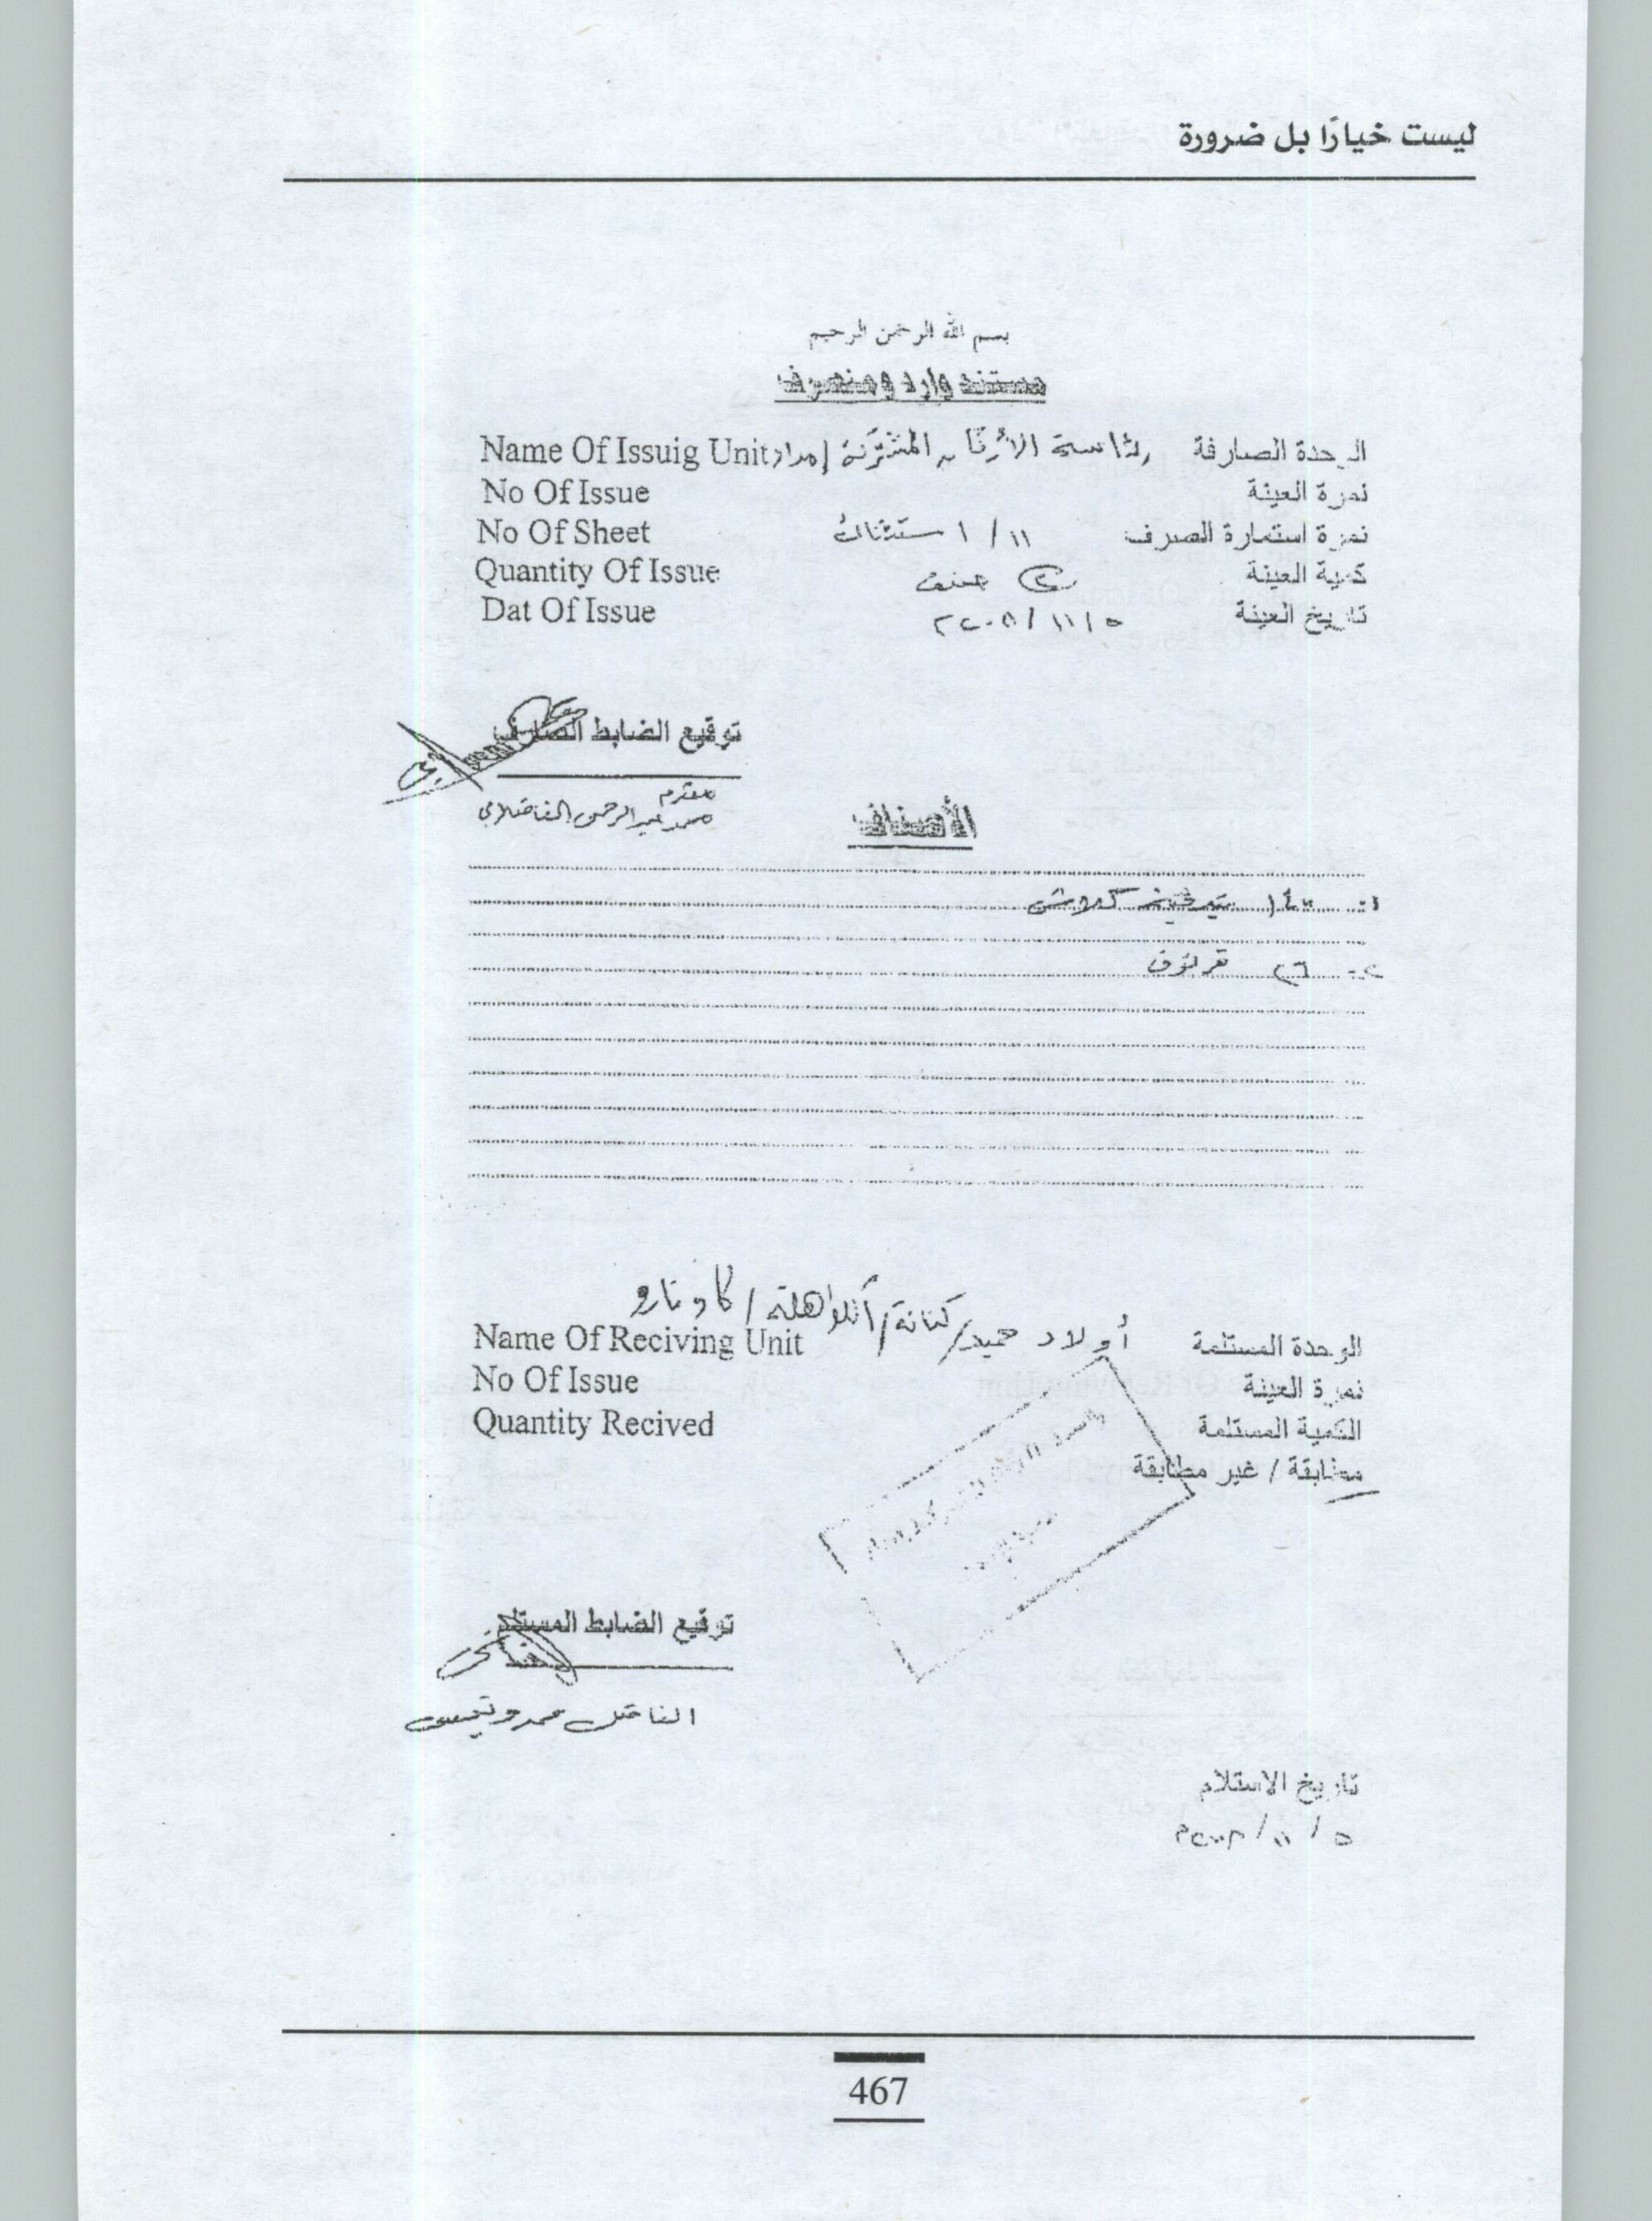 ليست خيارًا بل ضرورة
بسم الله الرحمن الرحيم
مستند وارد ومنصرف
الوحدة الصارفة رئاسة الأركان المشتركة إمداد Name Of Issuig Unit
نمرة العينة No Of Issue
نمرة استمارة الصرف ١١ / ١ No Of Sheet
كمية العينة صنف Quantity Of Issue
تاريخ العينة ٥ / ١١ / Dat Of Issue
توقيع الضابط الصارف
محمد عبدالرحمن
الأصناف
١- كلاش
٢- ٢٦ قرنوف
أولاد حميد / كنانة /
الوحدة المستلمة Name Of Reciving Unit
نمرة العينة No Of Issue
الكمية المستلمة Quantity Recived
مطابقة / غير مطابقة
توقيع الضابط المستلم
الفاضل محمد
تاريخ الاستلام
٥ / ١١ /
467